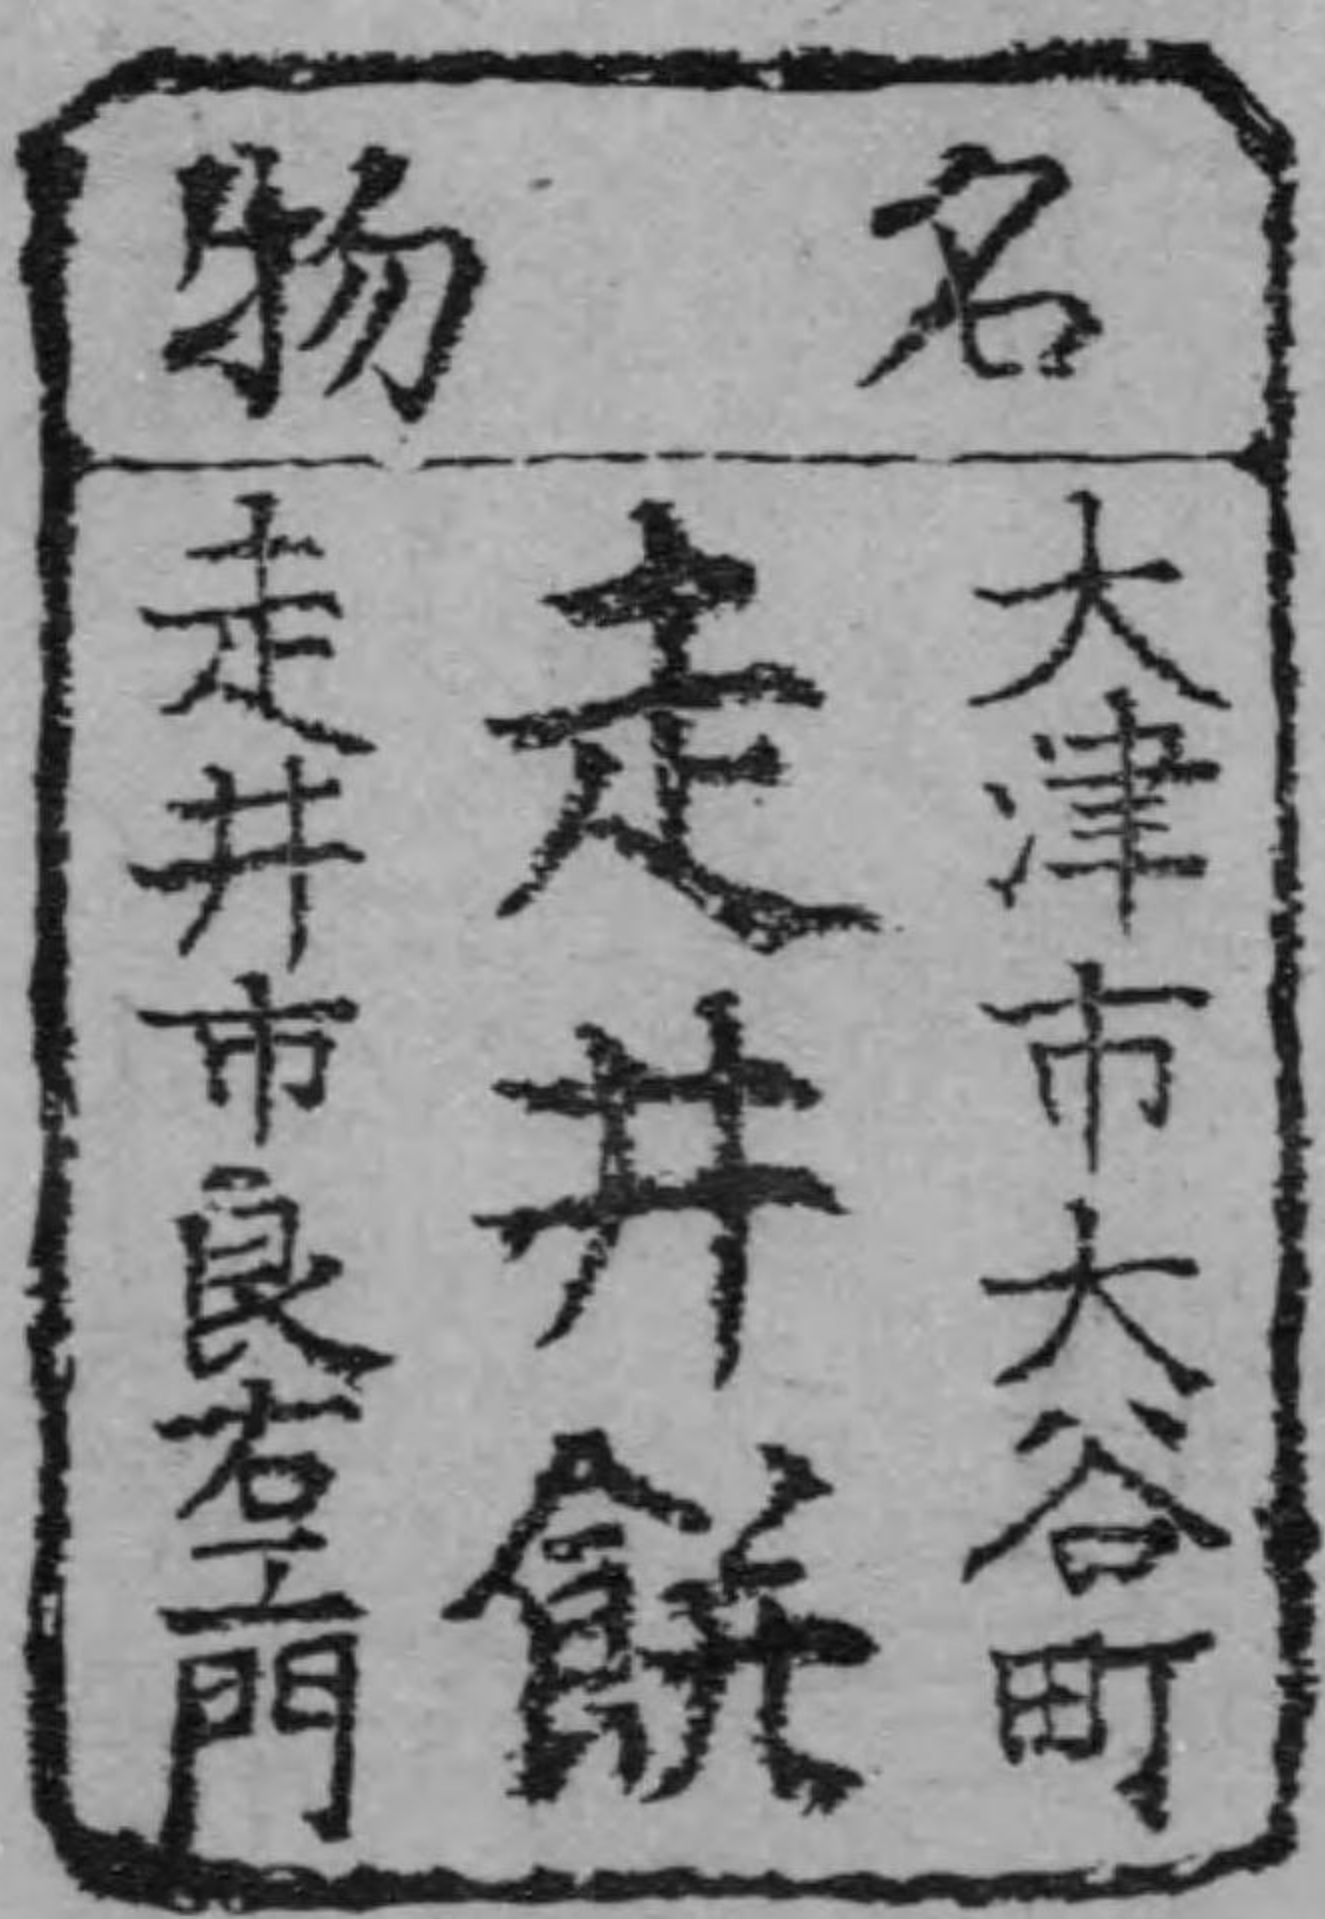 名物
大津市大谷町
走井餅
走井市良右エ門